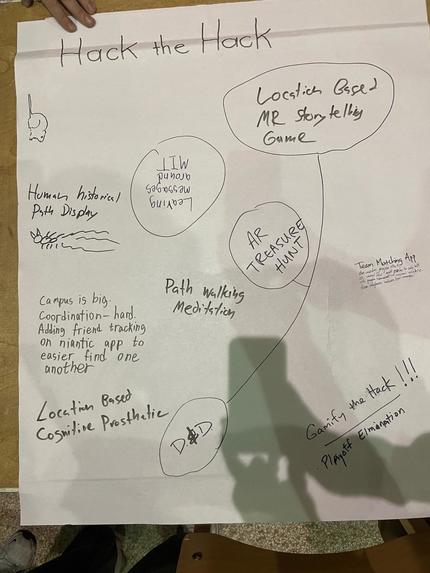 Hack the Hack
Location Based
MR Storytelling
Game
Leaving
messages
around
MIT
Human historical
Path Display
AR
TREASURE
HUNT
Team Matching App
Path Walking
Meditation
Campus is big.
Coordination - hard.
Adding friend tracking
on niantic app to
easier find one
another
Location Based
Cognitive Prosthetic
D&D
Gamify the Hack!!!
Playoff Elmanation